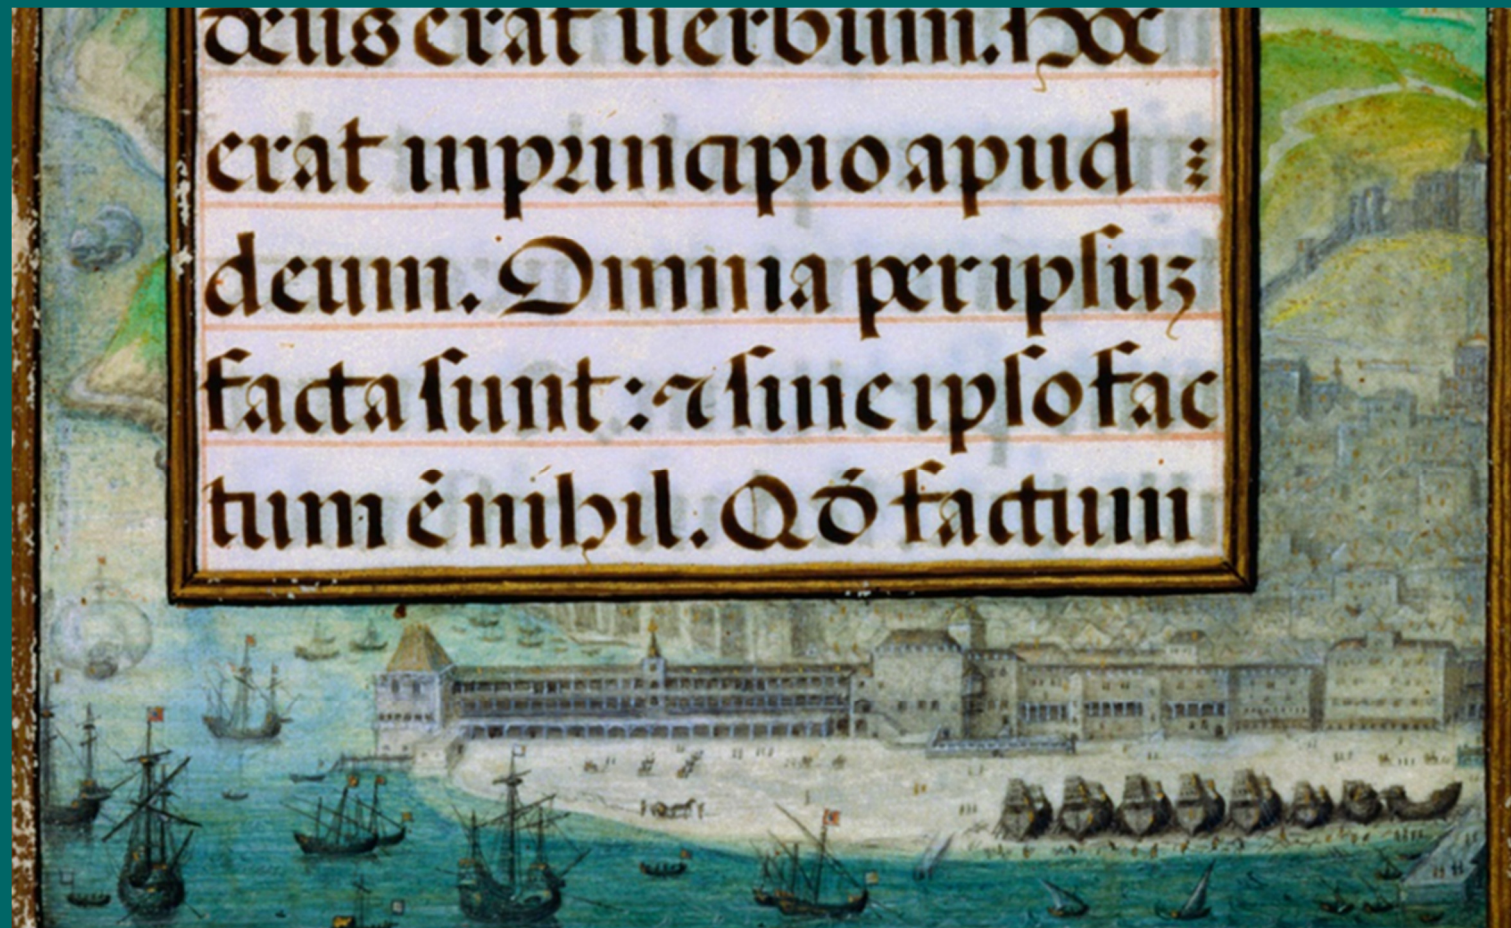 deus erat uerbum. Hoc
erat inprincipio apud :
deum. Omnia per ipsuʒ
facta sunt: ⁊ sine ipso fac
tum ē nihil. Qō factum